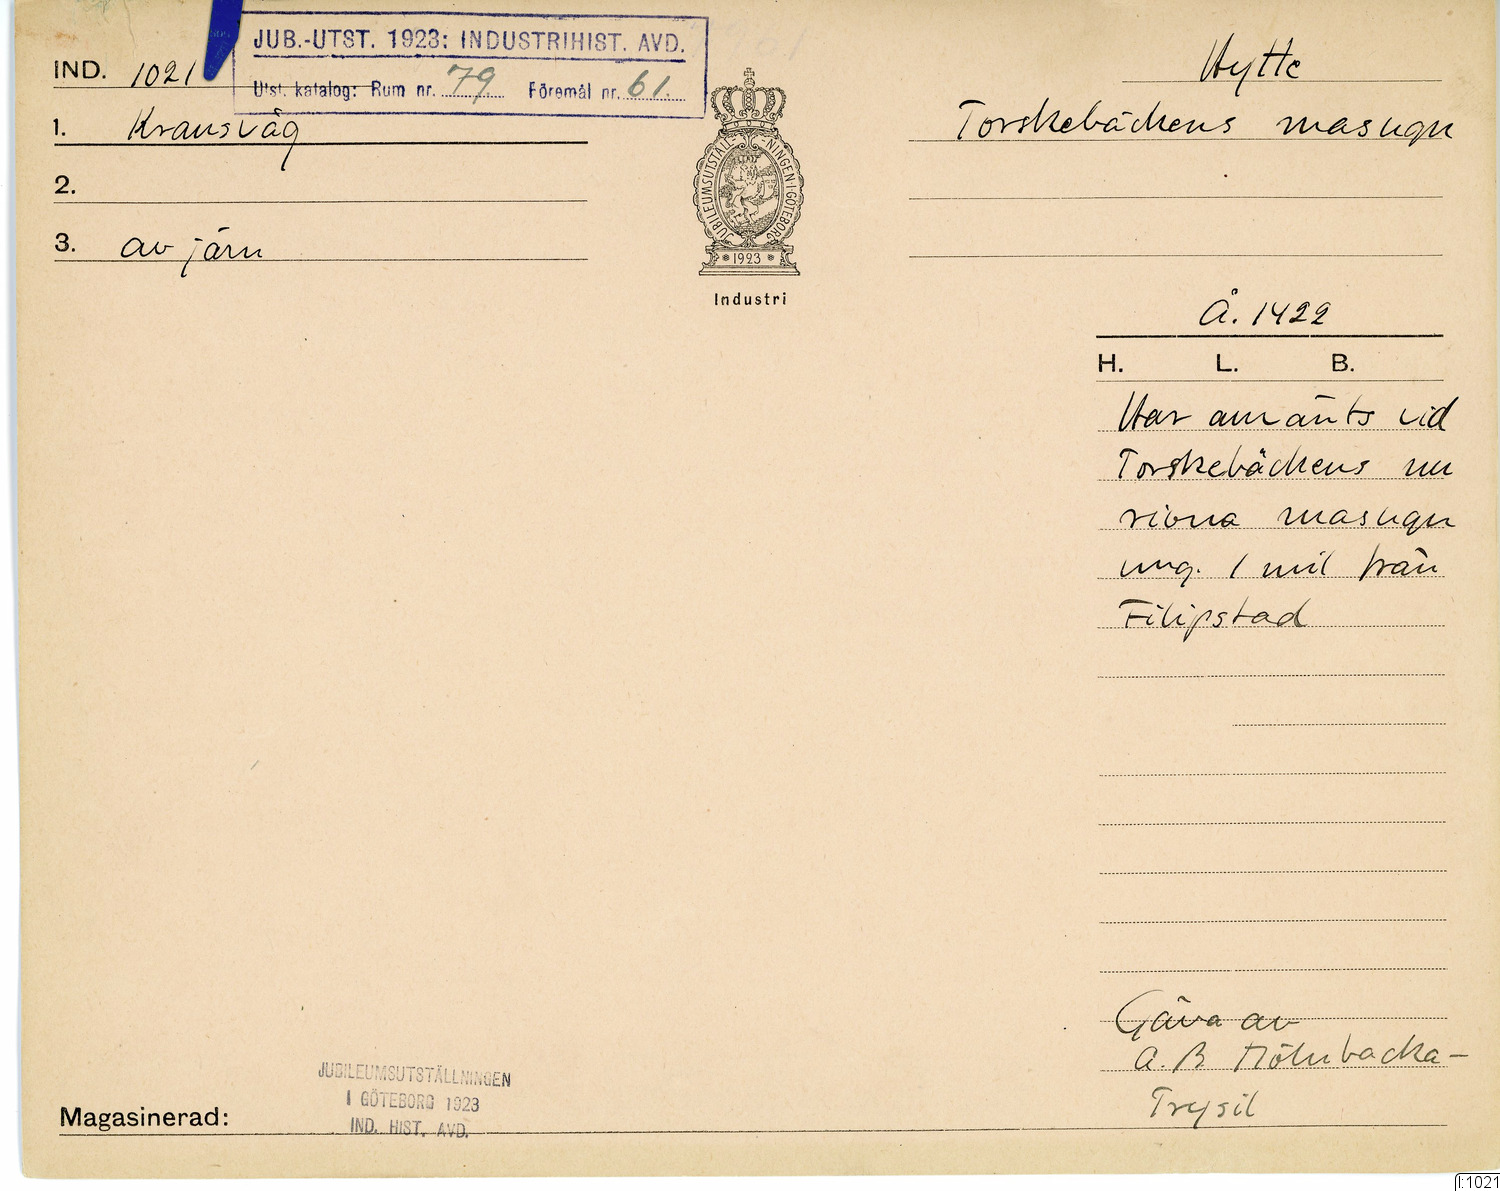 JUB.-UTST. 1923: INDUSTRIHIST. AVD.
Utst. katalog: Rum nr. 79 Föremål nr. 61.
IND. 1021
1. Kransvåg
2.
3. av järn
JUBILEUMSUTSTÄLL-NINGEN·I·GÖTEBORG
* 1923 *
Industri
Hytte
Torskebäckens masugn
Å. 1422
H. L. B.
Har använts vid
Torskebäckens nu
rivna masugn
ung. 1 mil från
Filipstad
Gåva av
A. B Mölnbacka-
Trysil
JUBILEUMSUTSTÄLLNINGEN
I GÖTEBORG 1923
IND. HIST. AVD.
Magasinerad:
I:1021